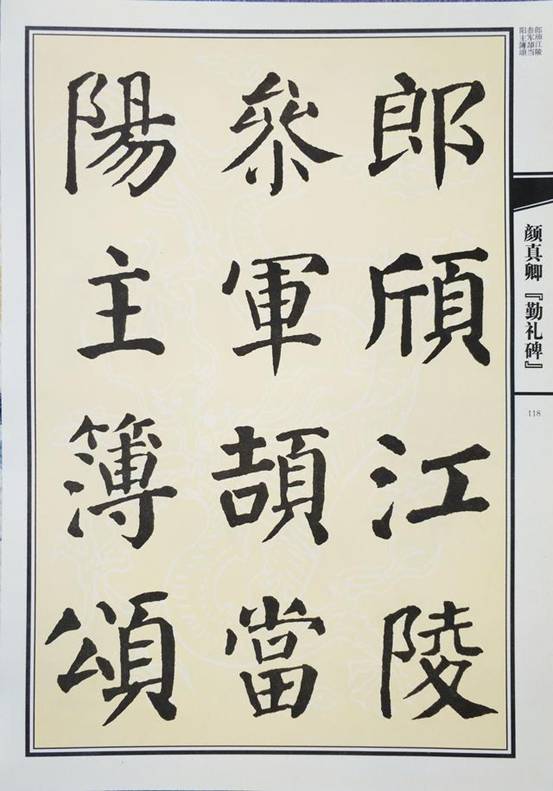 郎頎江陵
參軍頡當
陽主簿頌
郎颀江陵
参军颉当
阳主簿颂
颜真卿『勤礼碑』
118